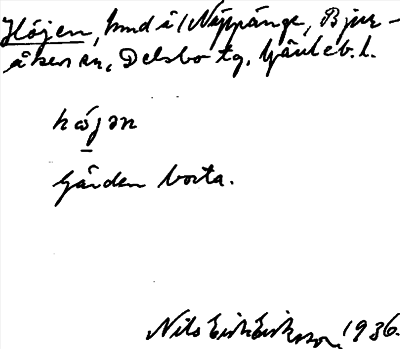 Höjen, hmd i Nyppänge, Bjur-
åkers sn, Delsbo tg, Gävleb. l.
hǿjən
Gården borta.
Nils Erik Eriksson, 1936.